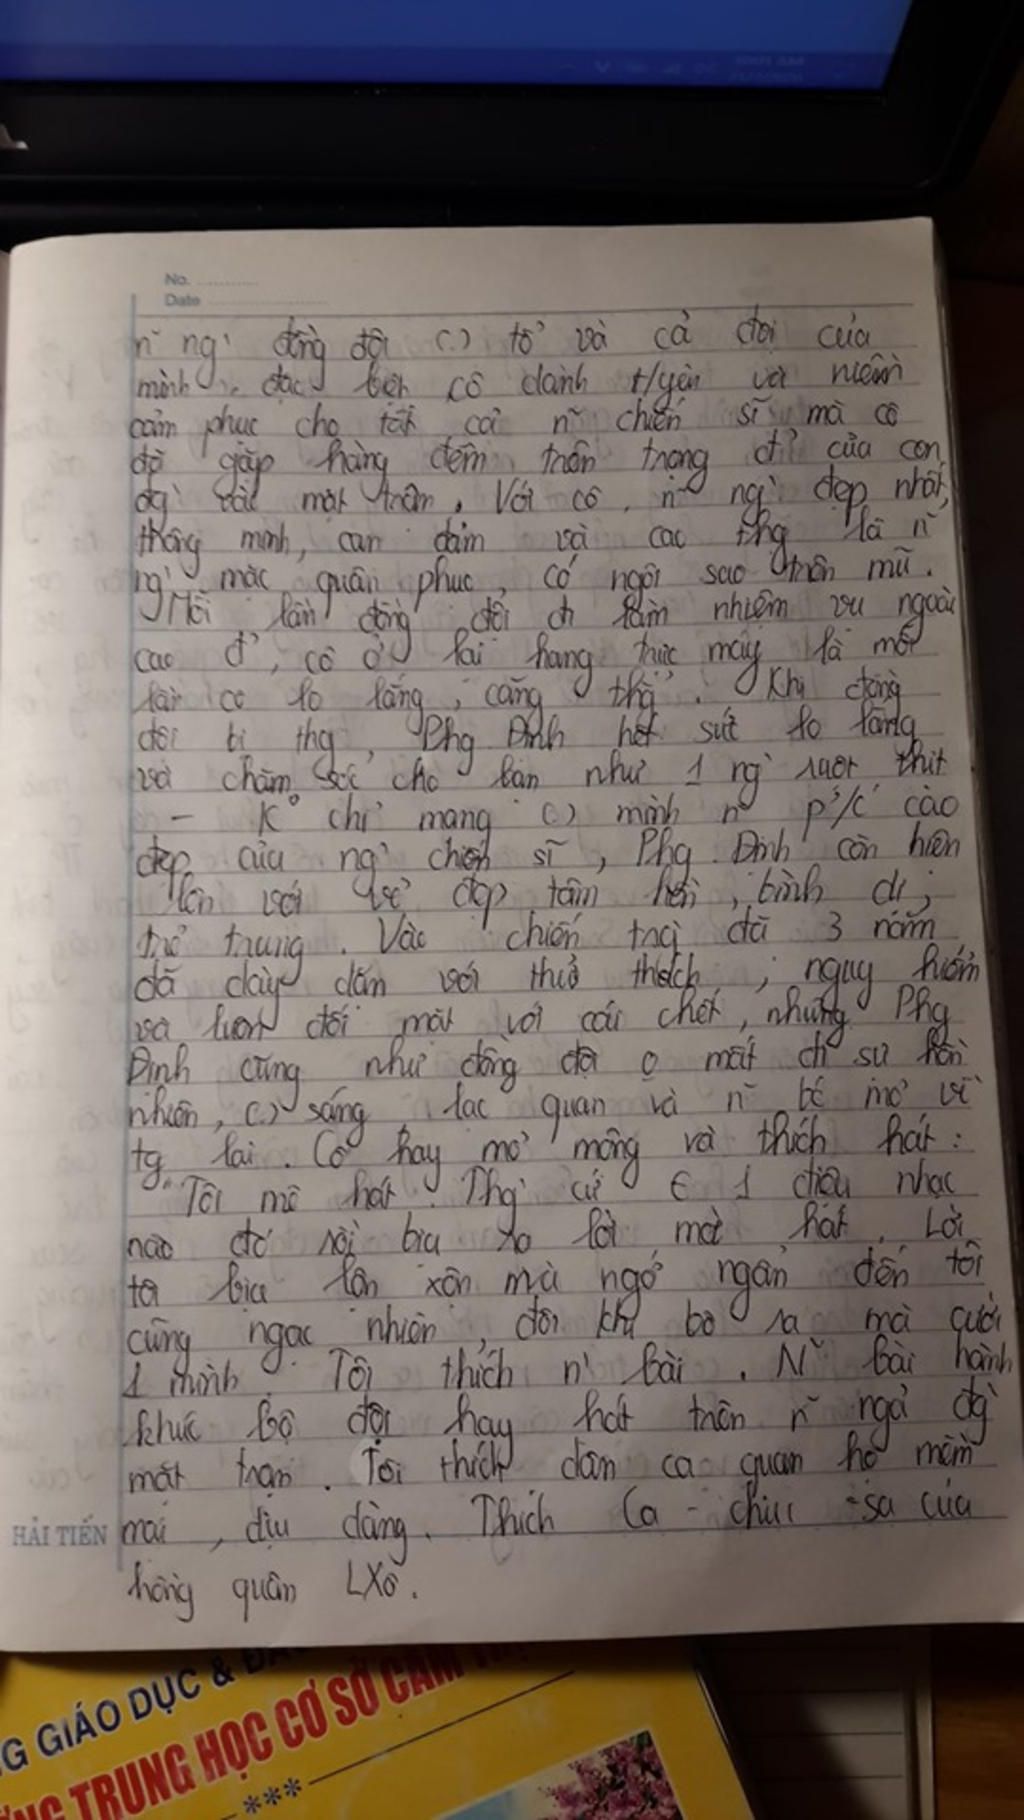 No.
Date
n~ ng` đồng đội (.) tổ và cả đơn của
mình, đặc biệt cô dành t/yêu và niềm
cảm phục cho tất cả n~ chiến sĩ mà cô
đã gặp hàng đêm trên trọng đ? của con
đg` vào mặt trận. Với cô, n~ ng` đẹp nhất,
thông minh, can đảm và cao thg là n~
ng` mặc quân phục, có ngôi sao trên mũ.
Mỗi lần đồng đội đi làm nhiệm vụ ngoài
cao đ?, cô ở lại hang trực máy là một
lần cô lo lắng, căng thg?. Khi đồng
đội bị thg, Phg Định hết sức lo lắng
và chăm sóc cho bạn như 1 ng` ruột thịt
- K° chỉ mang (.) mình n~ p²/c² cao
đẹp của ng` chiến sĩ, Phg Định còn hiện
lên với vẻ đẹp tâm hồn, bình dị,
trẻ trung. Vào chiến trg` đã 3 năm
đã dày dặn với thử thách, nguy hiểm
và luôn đối mặt với cái chết, nhưng Phg
Định cũng như đồng đội o mất đi sự hồn
nhiên, (.) sáng lạc quan và n~ bé mơ về
tg lai. Cô hay mơ mộng và thích hát:
"Tôi mê hát. Thg` cứ € 1 điệu nhạc
nào đó rồi bịa ra lời mà hát. Lời
tôi bịa lộn xộn mà ngớ ngẩn đến tôi
cũng ngạc nhiên, đôi khi bò ra mà cười
1 mình. Tôi thích n` bài. N~ bài hành
khúc bộ đội hay hát trên n~ ngả đg`
mặt trận. Tôi thích dân ca quan họ mềm
mại, dịu dàng. Thích Ca-chiu-sa của
hồng quân LXô.
HẢI TIẾN
GIÁO DỤC &
TRUNG HỌC CƠ SỞ
***